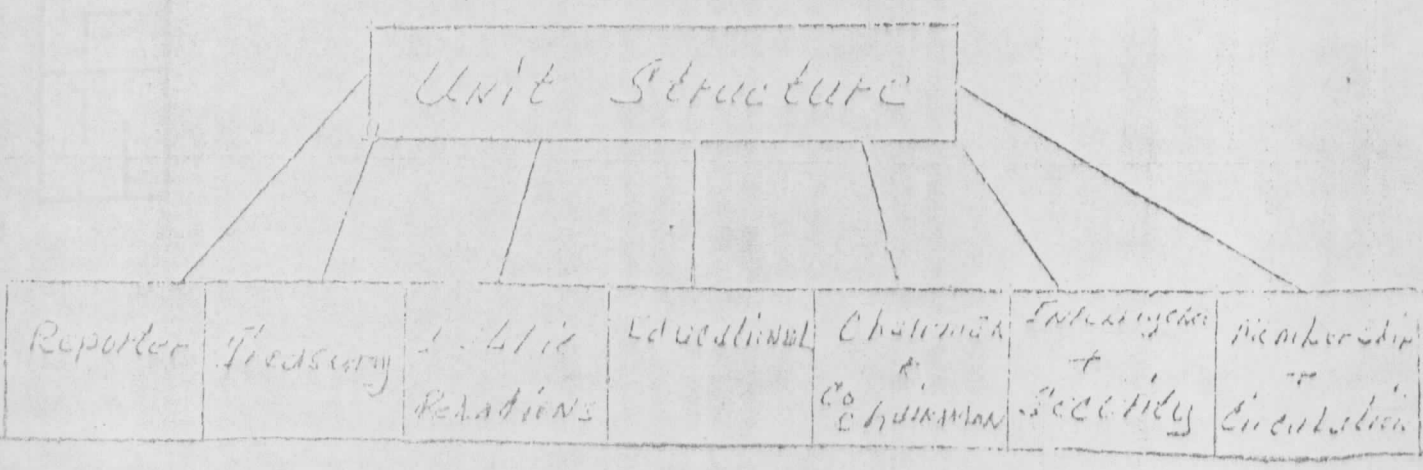 Unit Structure
Reporter
Treasury
Public
Relations
Educational
Chairman
&
Co
Chairman
Intelligence
+
Security
Membership
+
Circulation